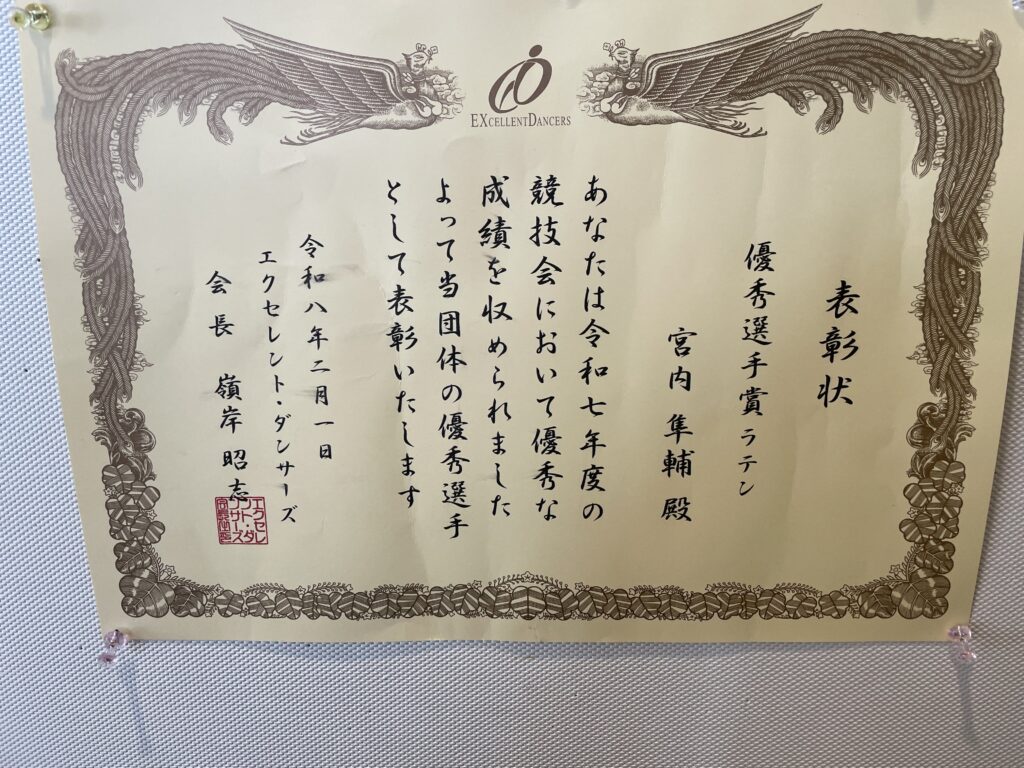 EXCELLENTDANCERS
表彰状
優秀選手賞ラテン
宮内 隼輔 殿
あなたは令和七年度の
競技会において優秀な
成績を収められました
よって当団体の優秀選手
として表彰いたします
令和八年二月一日
エクセレント・ダンサーズ
会長 嶺岸 昭志